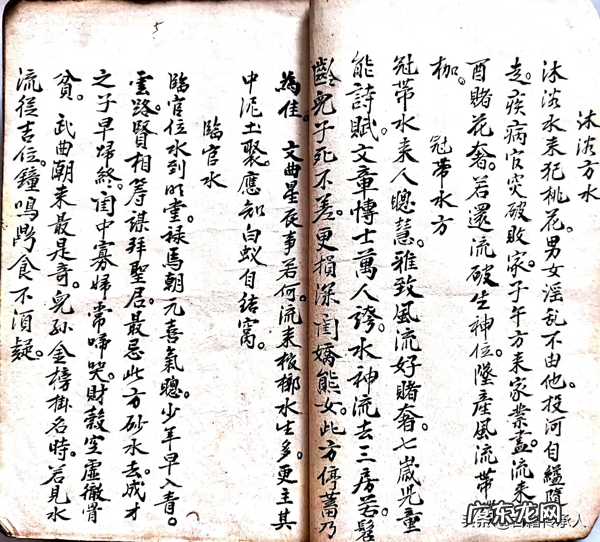 沐浴方水
沐浴水来犯桃花。男女淫乱不由他。投河自縊隨
走。疾病官灾破敗家。子午方来家業盡。流来
酉賭花奢。若還流破生神位。墮產風流帶
枷。 冠帶水方
冠帶水来人聰慧。雅致風流好賭奢。七歲児童
能詩賦。文章博士萬人誇。水神流去三房若髫
齡兒子死不差。更損深閨嬌態女。此方停蓄乃
5
為佳。 文曲星辰事若何。流来棺槨水生多。更主其
中泥土聚。應知白蚁自結窩。
臨官水
臨官位水到明堂。禄馬朝元喜氣聰。少年早入青。
雲路。賢相籌謀拜聖居。最忌此方砂水去。成才
之子早歸終。閨中寡婦常啼哭。財穀空虛徹骨
貧。武曲朝来最是奇。兒孫金榜掛名時。若見水
流從吉位。鐘鳴鼎食不須疑。
东龙网